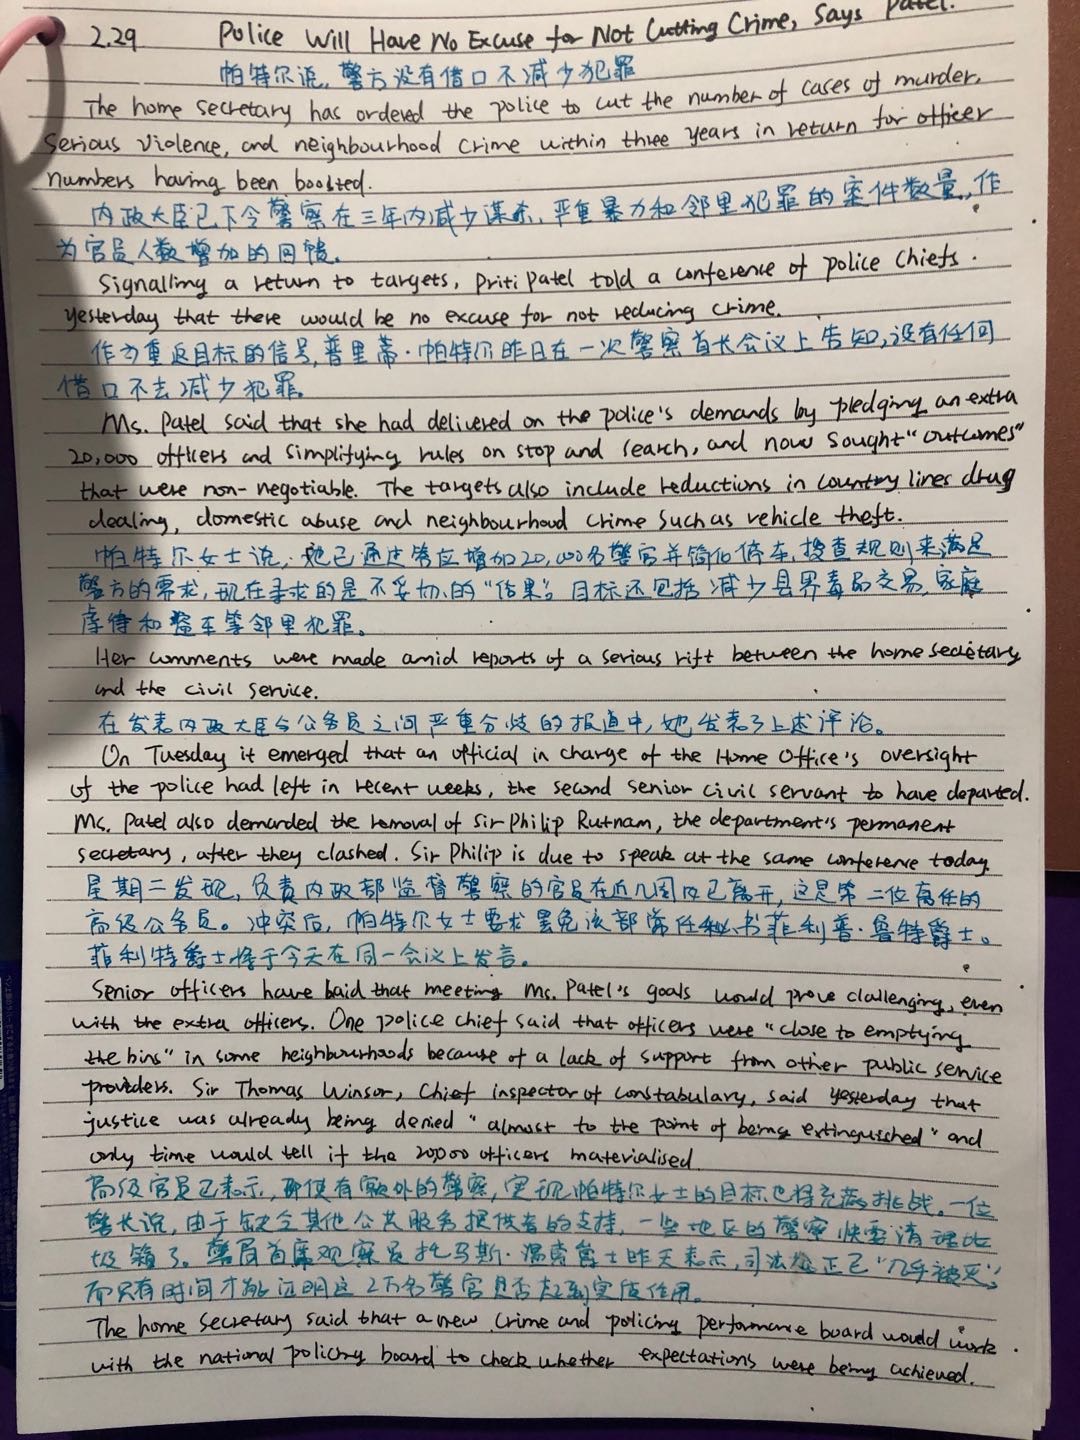 2.29 Police Will Have No Excuse for Not Cutting Crime, Says Patel.
帕特尔说,警方没有借口不减少犯罪
The home secretary has ordered the police to cut the number of cases of murder,
serious violence, and neighbourhood crime within three years in return for officer
numbers having been boosted.
内政大臣已下令警察在三年内减少谋杀、严重暴力和邻里犯罪的案件数量,作
为官员人数增加的回馈。
Signalling a return to targets, Priti Patel told a conference of police chiefs
yesterday that there would be no excuse for not reducing crime.
作为重返目标的信号,普里蒂·帕特尔昨日在一次警察首长会议上告知,没有任何
借口不去减少犯罪。
Ms. Patel said that she had delivered on the police's demands by pledging an extra
20,000 officers and simplifying rules on stop and search, and now sought "outcomes"
that were non-negotiable. The targets also include reductions in country lines drug
dealing, domestic abuse and neighbourhood crime such as vehicle theft.
帕特尔女士说,她已通过答应增加20,000名警官并简化停车、搜查规则来满足
警方的需求,现在寻求的是不妥协的“结果”。目标还包括减少县界毒品交易、家庭
虐待和盗车等邻里犯罪。
Her comments were made amid reports of a serious rift between the home secretary
and the civil service.
在发表内政大臣与公务员之间严重分歧的报道中,她发表了上述评论。
On Tuesday it emerged that an official in charge of the Home Office's oversight
of the police had left in recent weeks, the second senior civil servant to have departed.
Ms. Patel also demanded the removal of Sir Philip Rutnam, the department's permanent
secretary, after they clashed. Sir Philip is due to speak at the same conference today.
星期二发现,负责内政部监督警察的官员在近几周内已离开,这是第二位离任的
高级公务员。冲突后,帕特尔女士要求罢免该部常任秘书菲利普·鲁特爵士。
菲利特爵士将于今天在同一会议上发言。
Senior officers have baid that meeting Ms. Patel's goals would prove challenging, even
with the extra officers. One police chief said that officers were "close to emptying
the bins" in some neighbourhoods because of a lack of support from other public service
providers. Sir Thomas Winsor, Chief inspector of constabulary, said yesterday that
justice was already being denied "almost to the point of being extinguisshed" and
only time would tell if the 20,000 officers materialised.
高级官员已表示,即使有额外的警察,实现帕特尔女士的目标也将充满挑战。一位
警长说,由于缺乏其他公共服务提供者的支持,一些地区的警察快要清理垃
圾箱了。警局首席观察员托马斯·温索爵士昨天表示,司法公正已“几乎被灭”,
而只有时间才能证明这2万名警官是否起到实质作用。
The home secretary said that a new crime and policing performance board would work
with the national policing board to check whether expectations were being achieved.